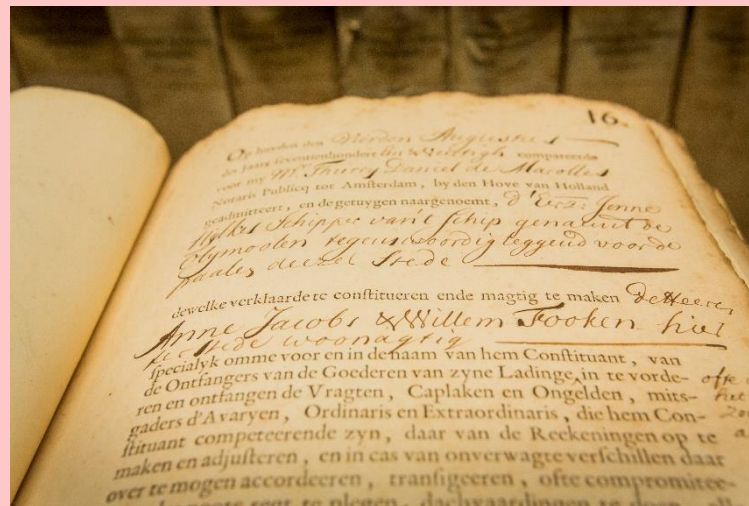 16.
Op heeden den Vierden Augustus
des jaars seventienhondert een &veertigh compareerde
voor my Mr. Thierry Daniel de Marolles
Notaris Publicq tot Amsterdam, by den Hove van Holland
geadmitteert, en de getuygen naargenoemt, d'Eerz: Jenne
Wylkes Schipper van't schip genaamt de
Olymoolen tegenswoordig leggend voor de
paalen deezer Stede
dewelke verklaarde te constitueren ende magtig te maken de Heeren
Anne Jacobs & Willem Fooken hier
ter stede woonagtig
specialyk omme voor en in de naam van hem Constituant, van
de Ontfangers van de Goederen van zyne Ladinge, in te vorde- ofte
ren en ontfangen de Vragten, Caplaken en Ongelden, mits-
gaders d'Avaryen, Ordinaris en Extraordinaris, die hem Con-
stituant competeerende zyn, daar van de Reekeningen op te
maken en adjusteren, en in cas van onverwagte verschillen daar
over te mogen accordeeren, transigeeren, ofte compromitee-
te plegen, dachvaardingen te doen